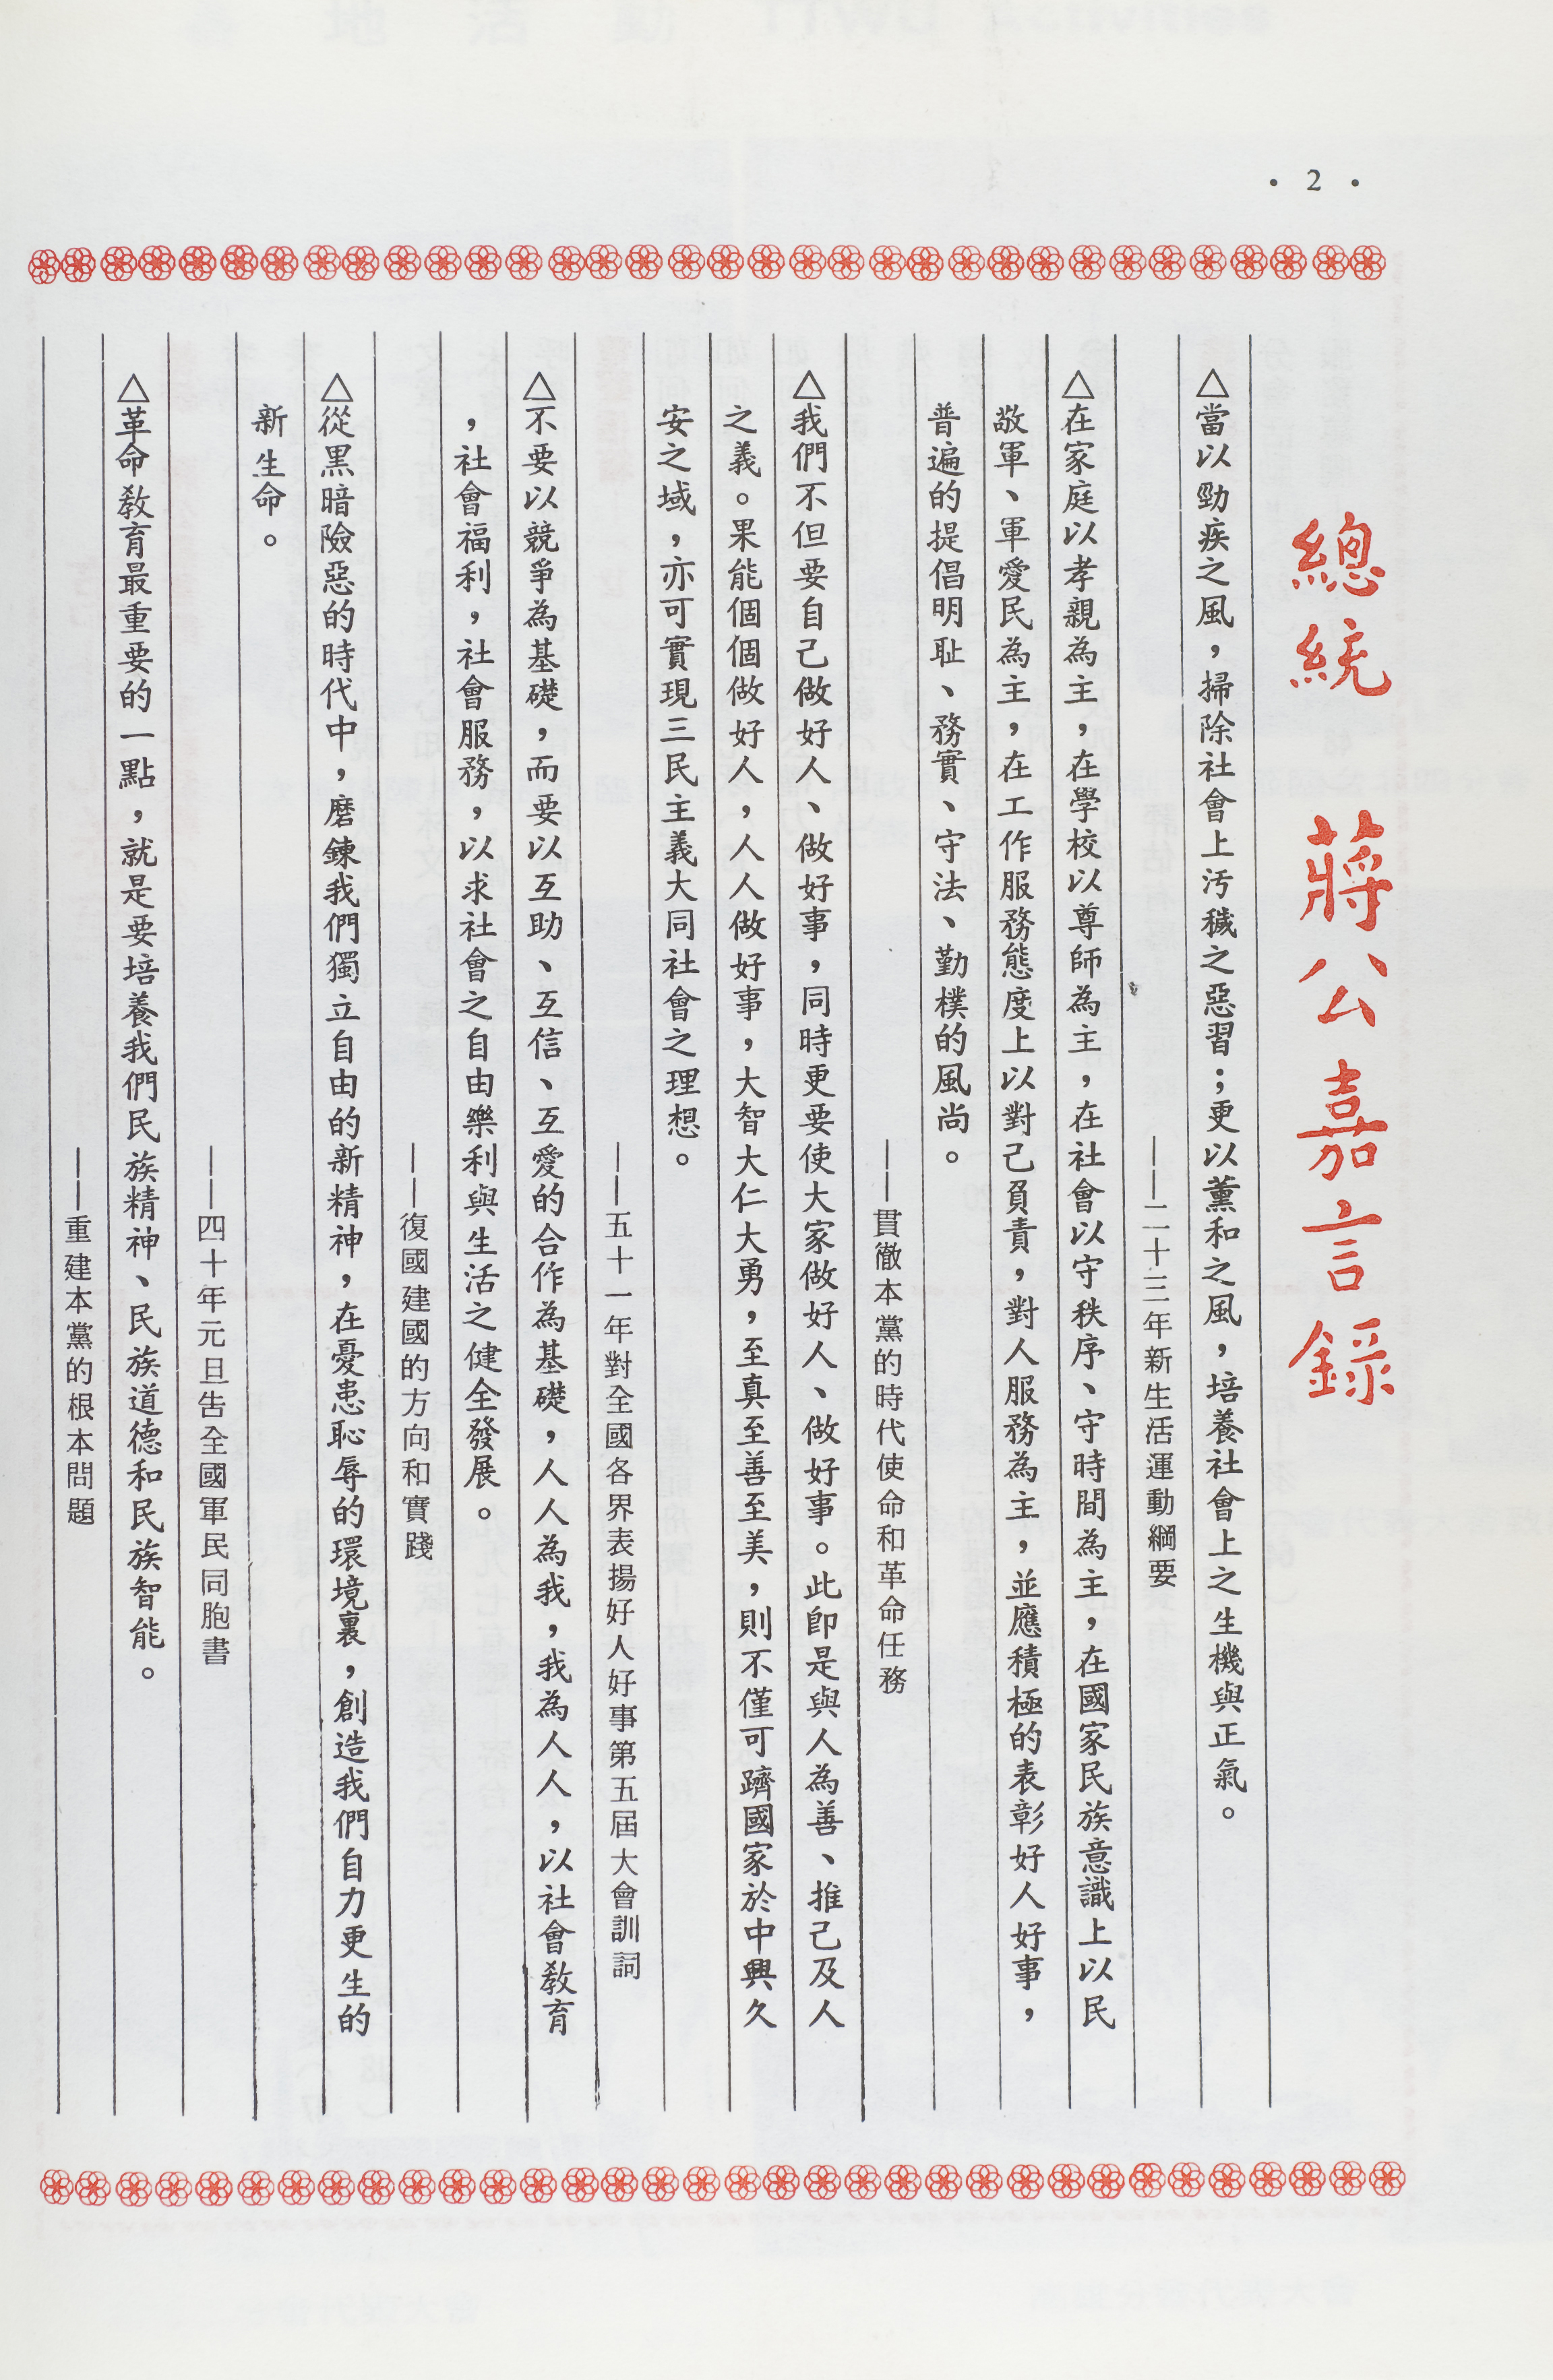 • 2 •
總統 蔣公嘉言錄
△當以勁疾之風，掃除社會上汚穢之惡習；更以薰和之風，培養社會上之生機與正氣。
——二十三年新生活運動綱要
△在家庭以孝親為主，在學校以尊師為主，在社會以守秩序、守時間為主，在國家民族意識上以民
敬軍、軍愛民為主，在工作服務態度上以對己負責，對人服務為主，並應積極的表彰好人好事，
普遍的提倡明恥、務實、守法、勤樸的風尚。
——貫徹本黨的時代使命和革命任務
△我們不但要自己做好人、做好事，同時更要使大家做好人、做好事。此即是與人為善、推己及人
之義。果能個個做好人，人人做好事，大智大仁大勇，至真至善至美，則不僅可躋國家於中興久
安之域，亦可實現三民主義大同社會之理想。
——五十一年對全國各界表揚好人好事第五屆大會訓詞
△不要以競爭為基礎，而要以互助、互信、互愛的合作為基礎，人人為我，我為人人，以社會教育
，社會福利，社會服務，以求社會之自由樂利與生活之健全發展。
——復國建國的方向和實踐
△從黑暗險惡的時代中，磨鍊我們獨立自由的新精神，在憂患恥辱的環境裏，創造我們自力更生的
新生命。
——四十年元旦告全國軍民同胞書
△革命教育最重要的一點，就是要培養我們民族精神、民族道德和民族智能。
——重建本黨的根本問題